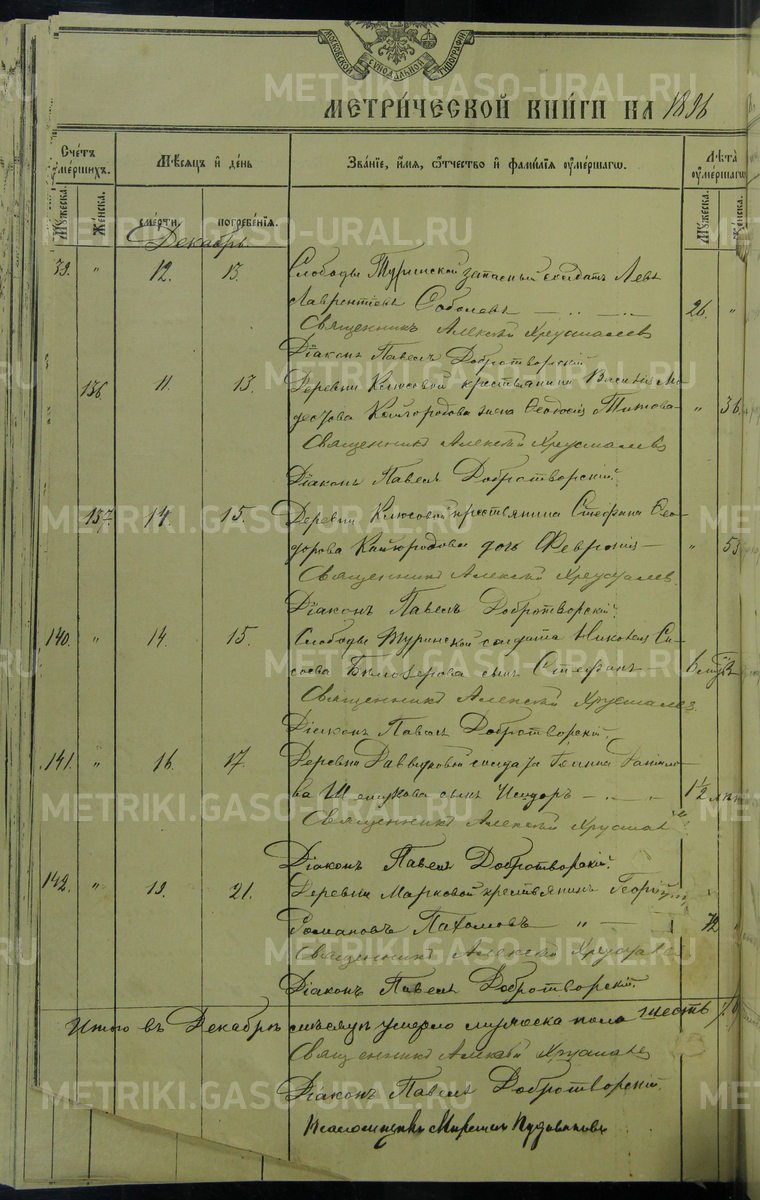 МОСКОВСКОЙ СѴНОДАЛЬНОЙ ТИПОГРАФІИ
METRIKI.GASO-URAL.RU
МЕТРИ́ЧЕСКОЙ КНИ́ГИ НА 1896
Сче́тъ ᲂу҆ме́ршихъ.
Мѣ́сяцъ и҆ де́нь
Зва́нїе, и҆́мя, ѻ҆́тчество и҆ фами́лїя ᲂу҆ме́ршагѡ.
Лѣ́та ᲂу҆ме́ршагѡ
Мꙋ́жеска.
Же́нска.
сме́рти.
погребе́нїя.
Мꙋ́жеска.
Же́нска.
Декабрь
39. " 12. 13. Слободы Туринской запасный солдатъ Левъ
Лаврентіевъ Соболевъ 26. "
Священникъ Алексѣй Хрусталевъ
Діаконъ Павелъ Добротворскій
136. 11. 13. Деревни Клюсовой крестьянина Василія Мо-
дестова Кайгородова жена Ѳеодосія Титова " 36
Священникъ Алексѣй Хрусталевъ
Діаконъ Павелъ Добротворскій
137. 14. 15. Деревни Клюсовой крестьянина Стефана Ѳео-
дорова Кайгородова дочь Февронія "
Священникъ Алексѣй Хрусталев
Діаконъ Павелъ Добротворскій
140. " 14. 15. Слободы Туринской солдата Николая Сы-
соева Бѣлозерова сынъ Стефанъ
Священникъ Алексѣй Хрусталев
Діаконъ Павелъ Добротворскій
141. " 16. 17. Деревни солдата Іоанна Данило-
ва сынъ Исидоръ 1½
Священникъ Алексѣй Хрустал
Діаконъ Павелъ Добротворскій.
142. " 19. 21. Деревни Марковой крестьянинъ Георгій
Романовъ Пахомовъ " 72
Священникъ Алексѣй Хрустале
Діаконъ Павелъ Добротворскій.
Итого въ Декабрѣ мѣсяцѣ умерло мужеска пола шесть
Священникъ Алексѣй Хрусталев
Діаконъ Павелъ Добротворскій
Псаломщикъ